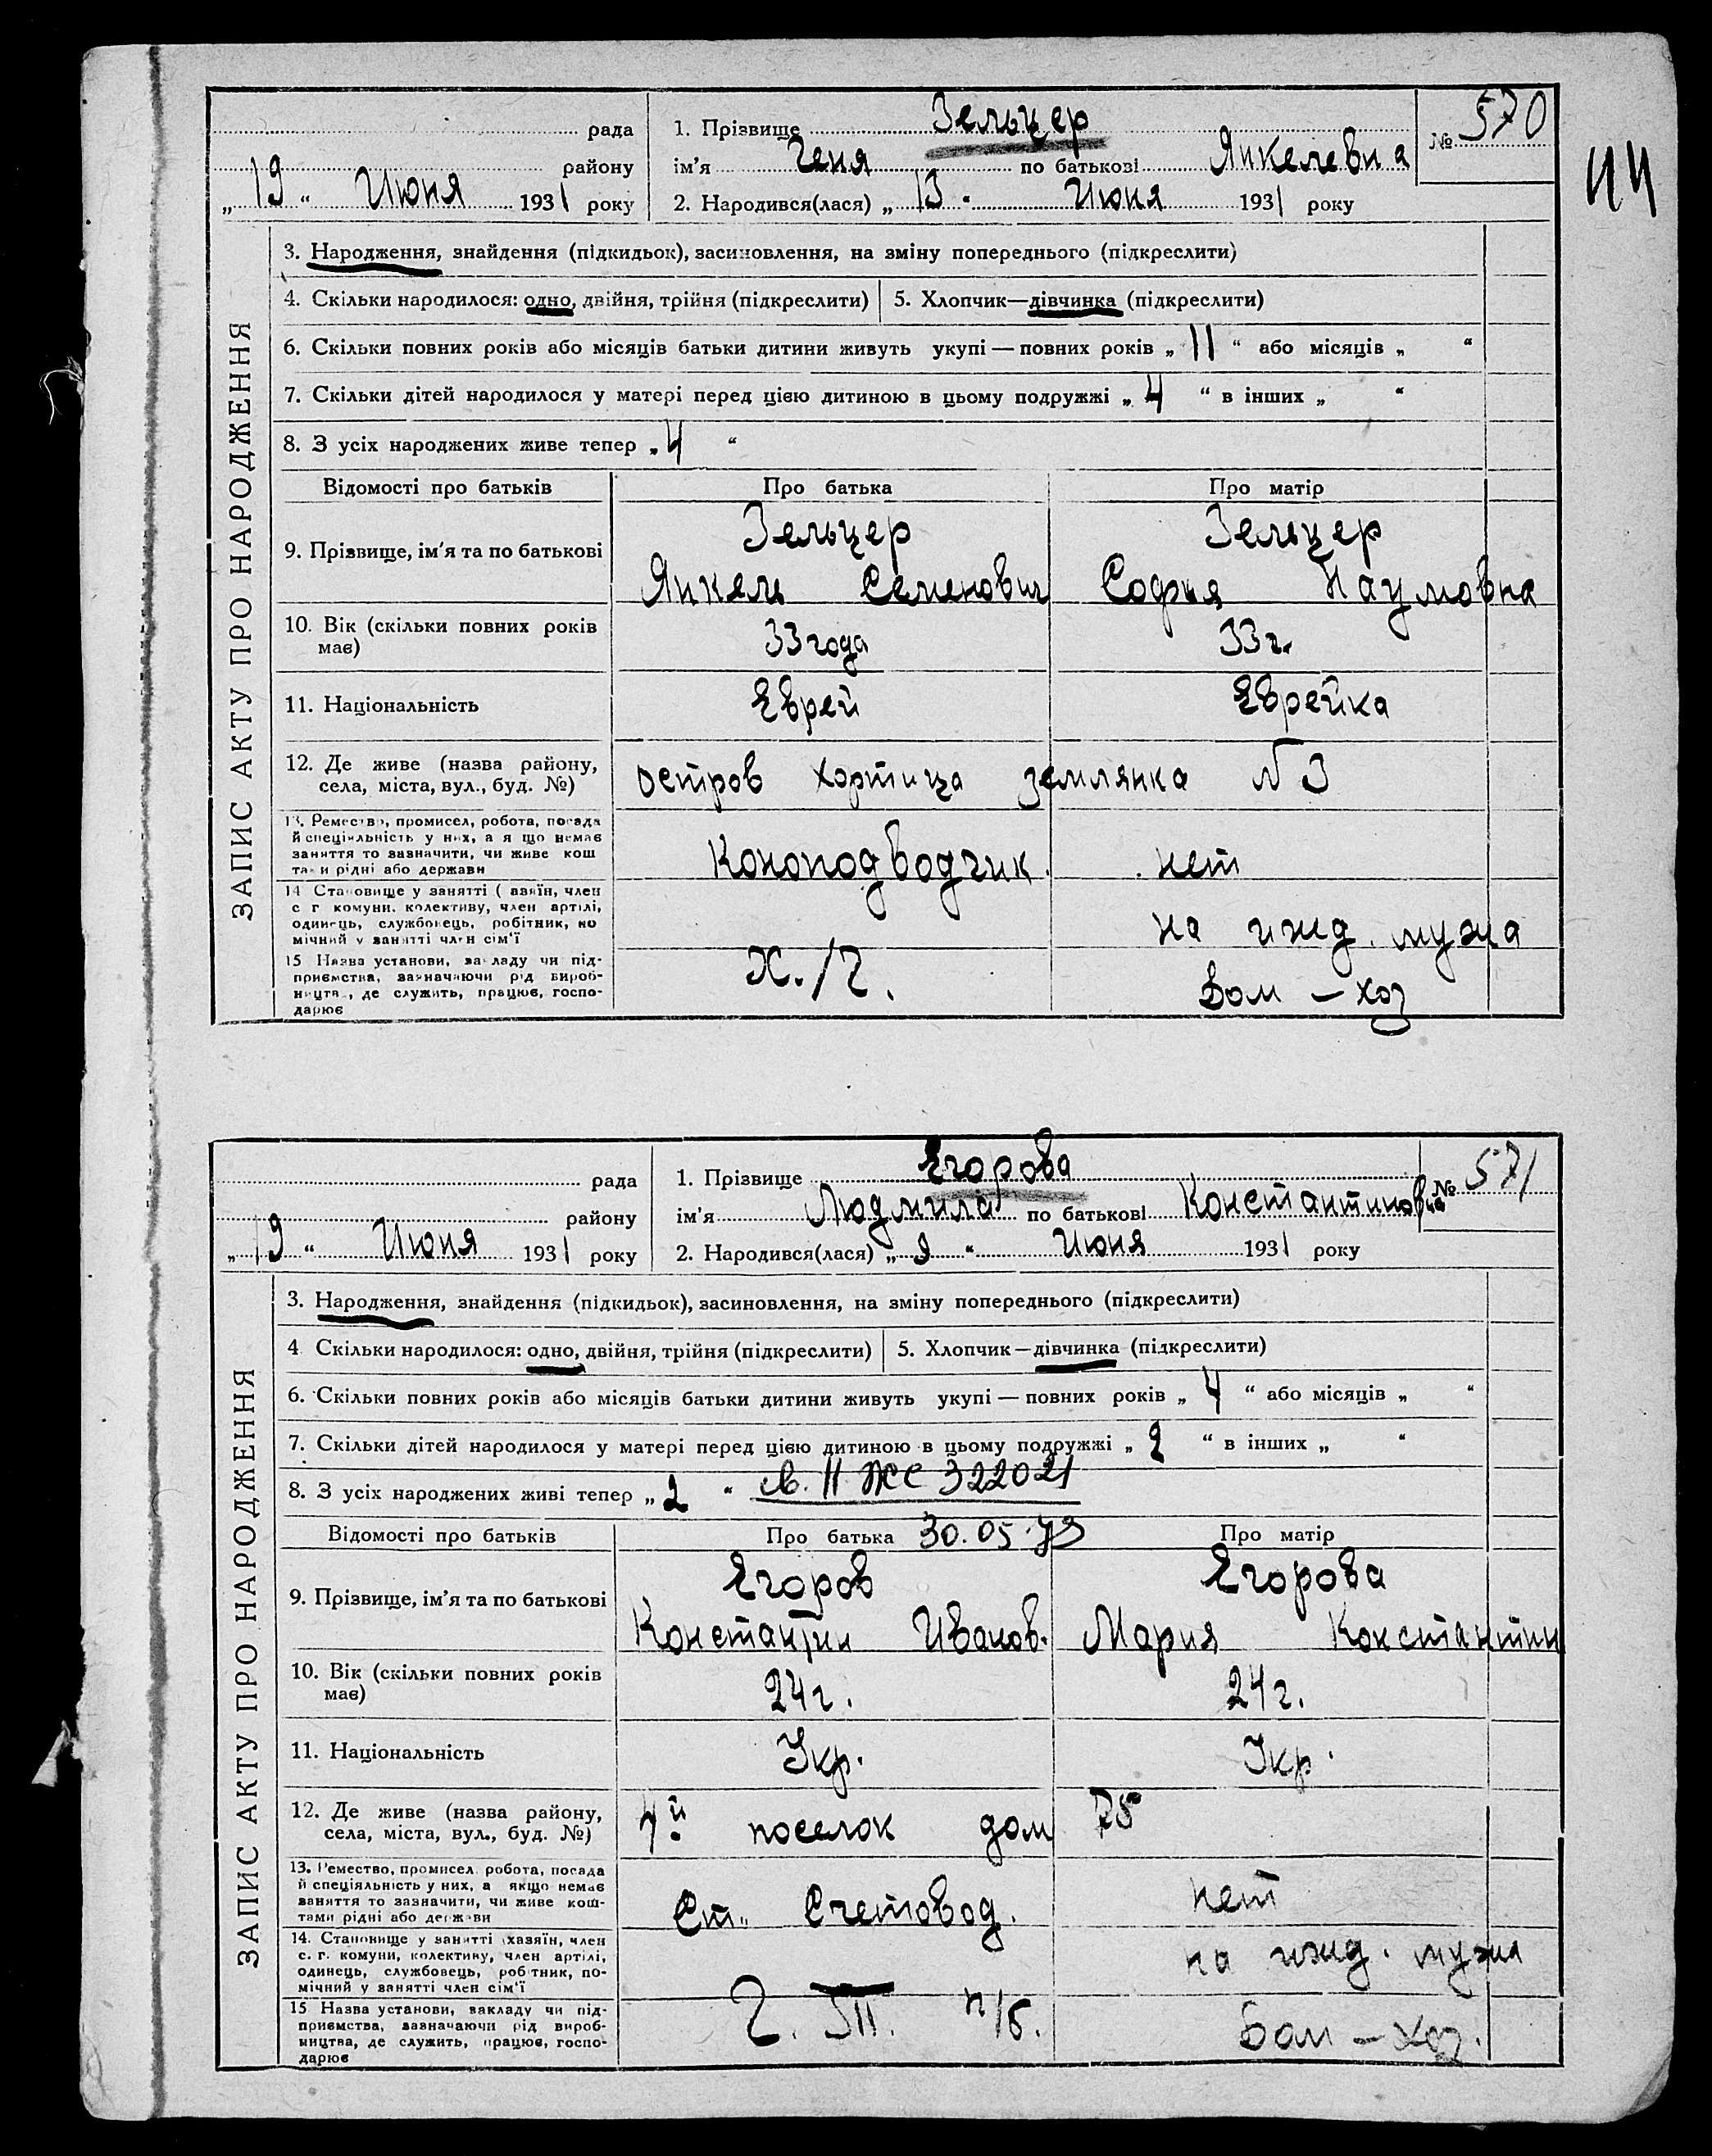 44
рада
1. Прізвище Зельцер
№ 570
району
ім'я Геня по батькові Янкелевна
„19“ Июня 1931 року
2. Народився(лася) „13“ Июня 1931 року
ЗАПИС АКТУ ПРО НАРОДЖЕННЯ
3. Народження, знайдення (підкидьок), засиновлення, на зміну попереднього (підкреслити)
4. Скільки народилося: одно, двійня, трійня (підкреслити) 5. Хлопчик—дівчинка (підкреслити)
6. Скільки повних років або місяців батьки дитини живуть укупі — повних років „11“ або місяців „ “
7. Скільки дітей народилося у матері перед цією дитиною в цьому подружжі „4“ в інших „ “
8. З усіх народжених живе тепер „4“
Відомості про батьків Про батька Про матір
9. Прізвище, ім'я та по батькові
Зельцер Зельцер
Янкель Семенович Софья Наумовна
10. Вік (скільки повних років має)
33 года 33 г.
11. Національність Еврей Еврейка
12. Де живе (назва району, села, міста, вул., буд. №)
остров Хортица землянка N 3
13. Ремество, промисел, робота, посада
й спеціяльність у них, а я що немає
заняття то зазначити, чи живе кош
та и рідні або держави
Коноподводчик. нет
14 Становище у занятті ( азяїн, член
с г комуни. колективу, член артілі,
одинець, службовець, робітник, по
мічний у занятті член сім'ї
на ижд. мужа
15 Назва установи, закладу чи під-
приємства, зазначаючи рід вироб-
ництва, де служить, працює, госпо-
дарює
Х./Г. Дом – хоз
рада
1. Прізвище Егорова
№ 571
району
ім'я Людмила по батькові Константиновна
„19“ Июня 1931 року
2. Народився(лася) „9“ Июня 1931 року
ЗАПИС АКТУ ПРО НАРОДЖЕННЯ
3. Народження, знайдення (підкидьок), засиновлення, на зміну попереднього (підкреслити)
4 Скільки народилося: одно, двійня, трійня (підкреслити) 5. Хлопчик—дівчинка (підкреслити)
6. Скільки повних років або місяців батьки дитини живуть укупі — повних років „4“ або місяців „ “
7. Скільки дітей народилося у матері перед цією дитиною в цьому подружжі „2“ в інших „ “
8. З усіх народжених живі тепер „2“ св. II ЖС 322021
Відомості про батьків Про батька 30.05.79 Про матір
9. Прізвище, ім'я та по батькові
Егоров Егорова
Константин Иванов. Мария Константин
10. Вік (скільки повних років має)
24 г. 24 г.
11. Національність Укр. Укр.
12. Де живе (назва району, села, міста, вул., буд. №)
4й поселок дом 75
13. Ремество, промисел робота, посада
й спеціяльність у них, а якщо немає
заняття то зазначити, чи живе кош-
тами рідні або держави
Ст. Счетовод. нет
14. Становище у занятті (хазяїн, член
с. г. комуни, колективу, член артілі,
одинець, службовець, робітник, по-
мічний у занятті член сім'ї
на ижд. мужа
15 Назва установи, закладу чи під-
приємства, зазначаючи рід вироб-
ництва, де служить, працює, госпо-
дарює
Дом – хоз.